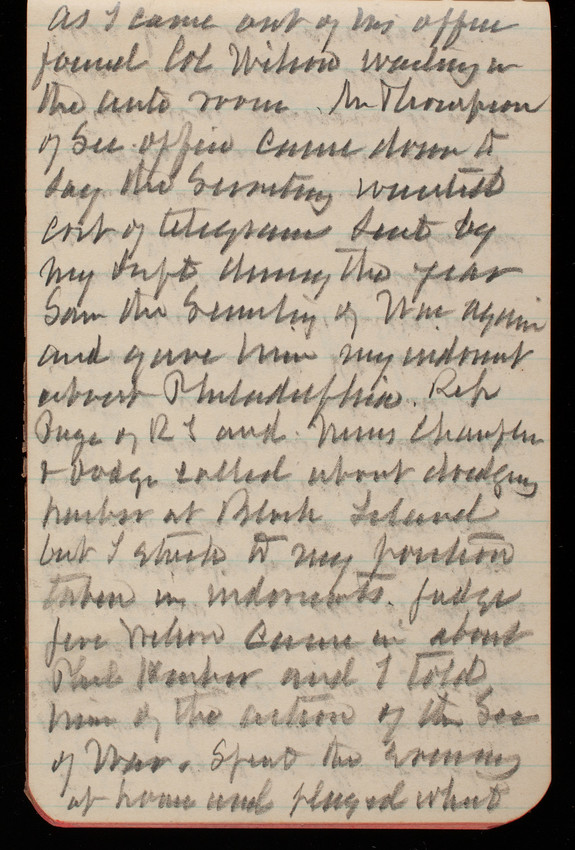 As I came out of his office
found Col Wilson waiting in
the ante room. Mr Thompson
of Sec office came down to
say the Secretary wanted
cost of telegrams sent by
my Dept during the year
Saw the Secretary of War again
and gave him my indorsmt
about Philadelphia. Rep
Page of R I and
& Dodge called about dredging
harbor at Block Island
but I stuck to my position
taken in indorsmts. Judge
Jere Wilson came in about
Phil Harbor and I told
him of the action of the Sec
of War. Spent the evening
at home and played whist